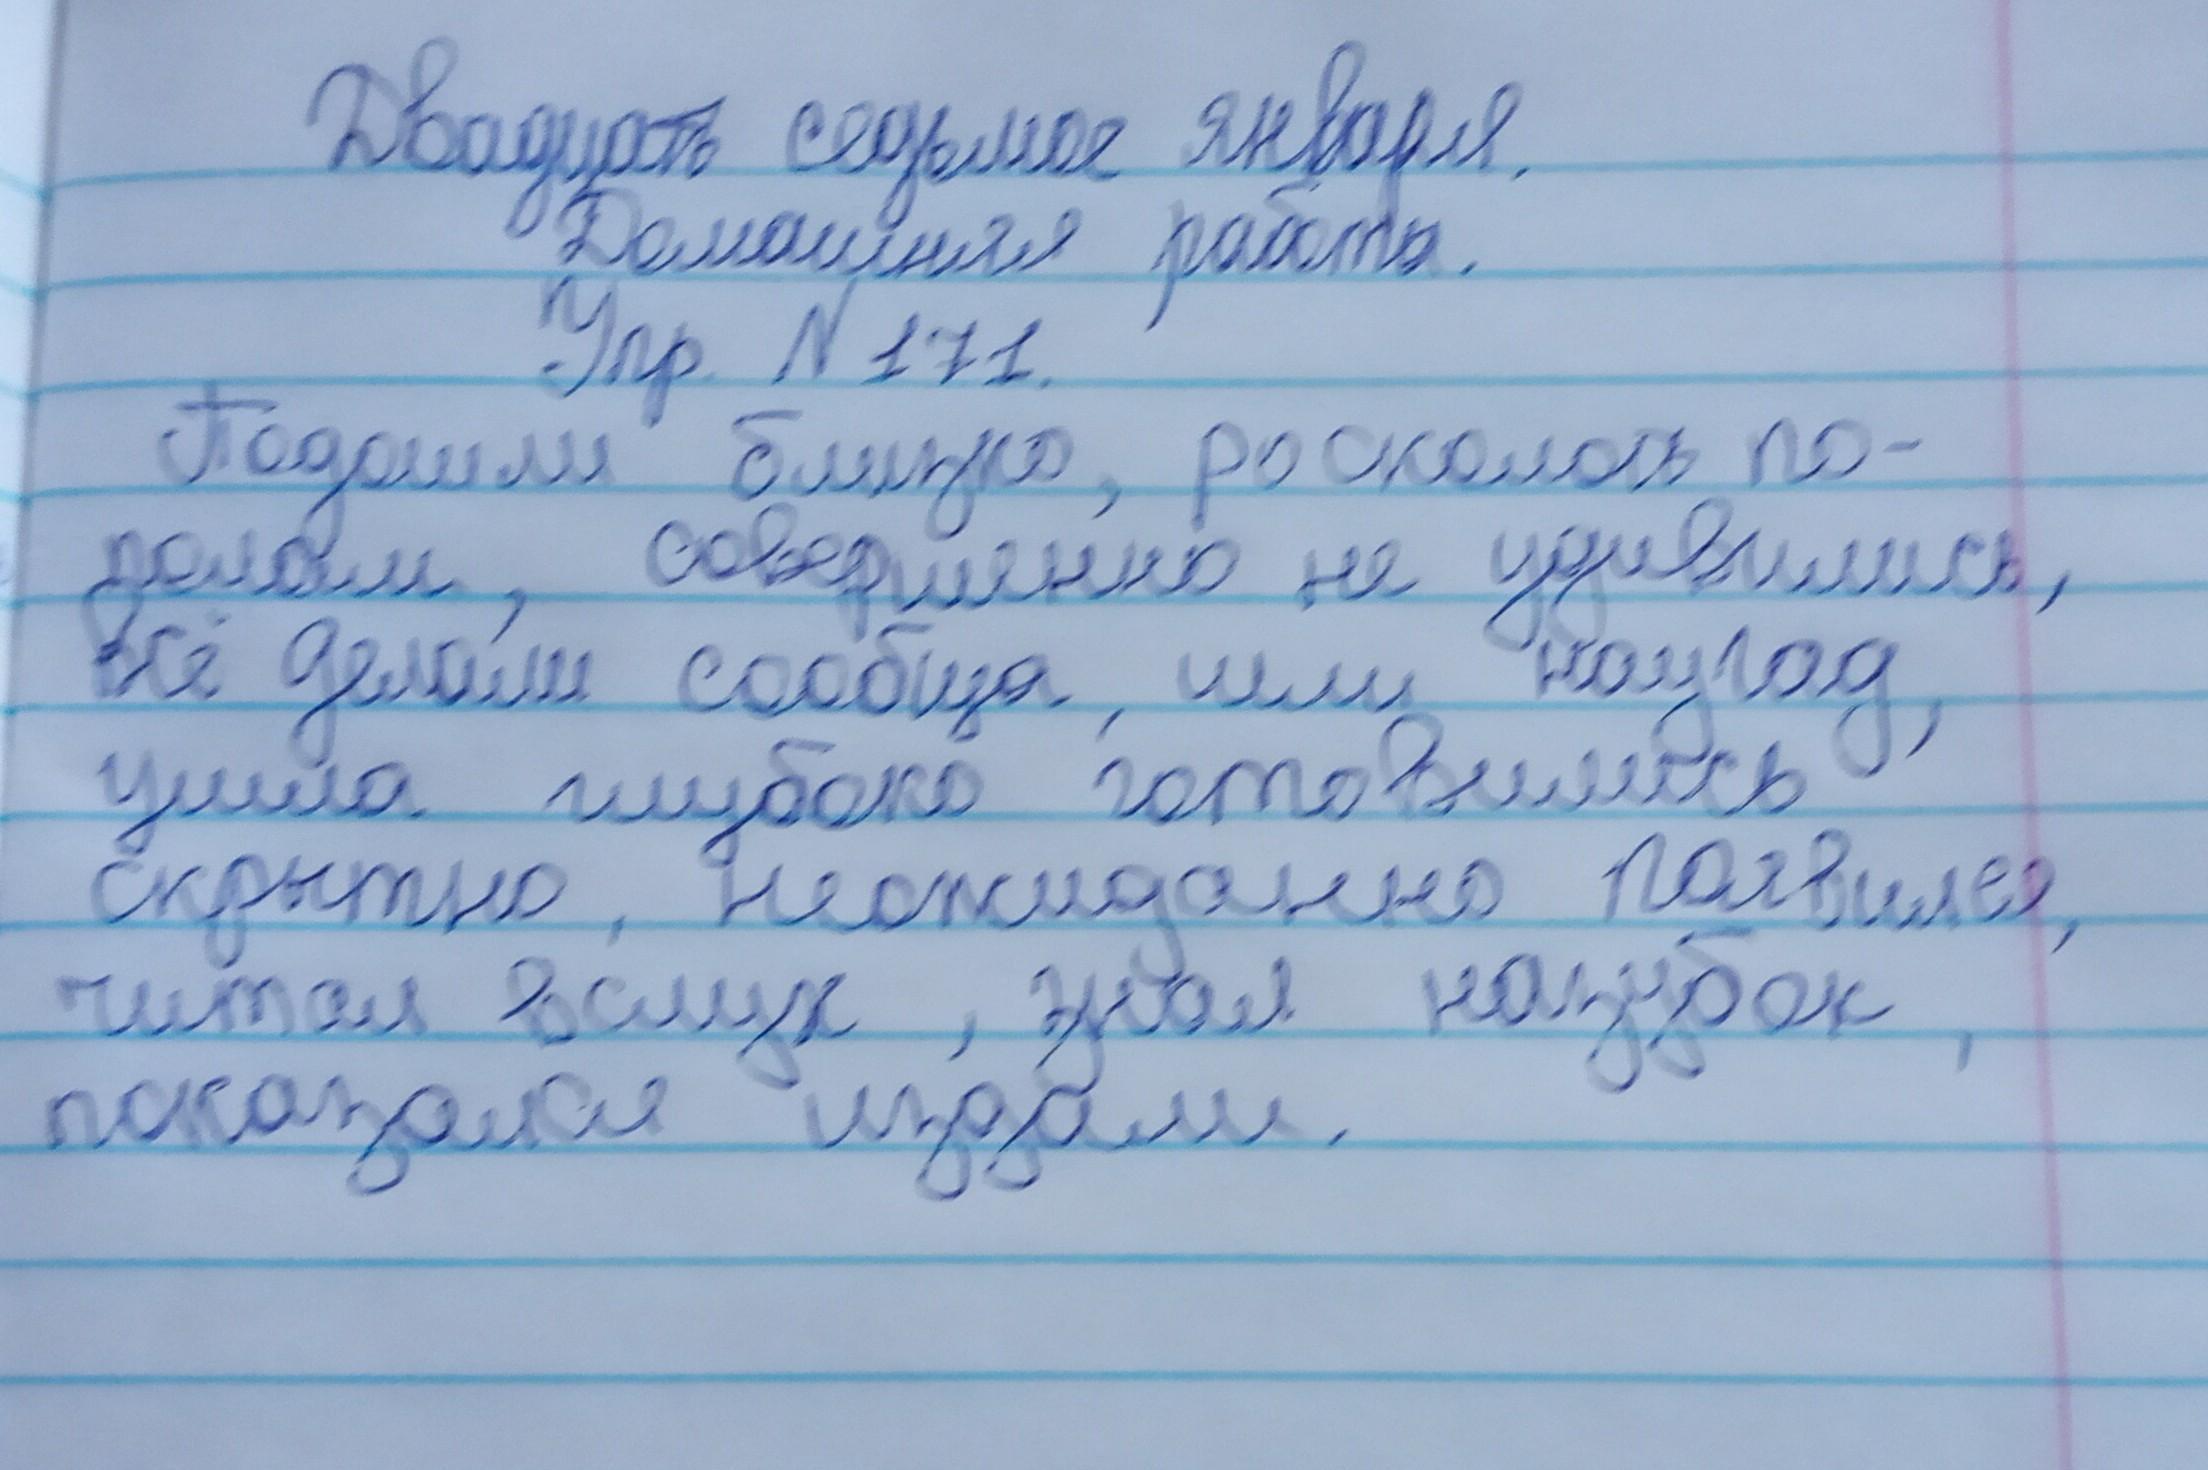 Двадцать седьмое января.
Домашняя работа.
Упр. N 171.
Подошли близко, росколоть по-
полам, совершенно не удивились,
всё делали сообща, шли наугад,
ушла глубоко готовились
скрытно, неожиданно появилсо,
читал вслух, знал назубок,
показался издали.